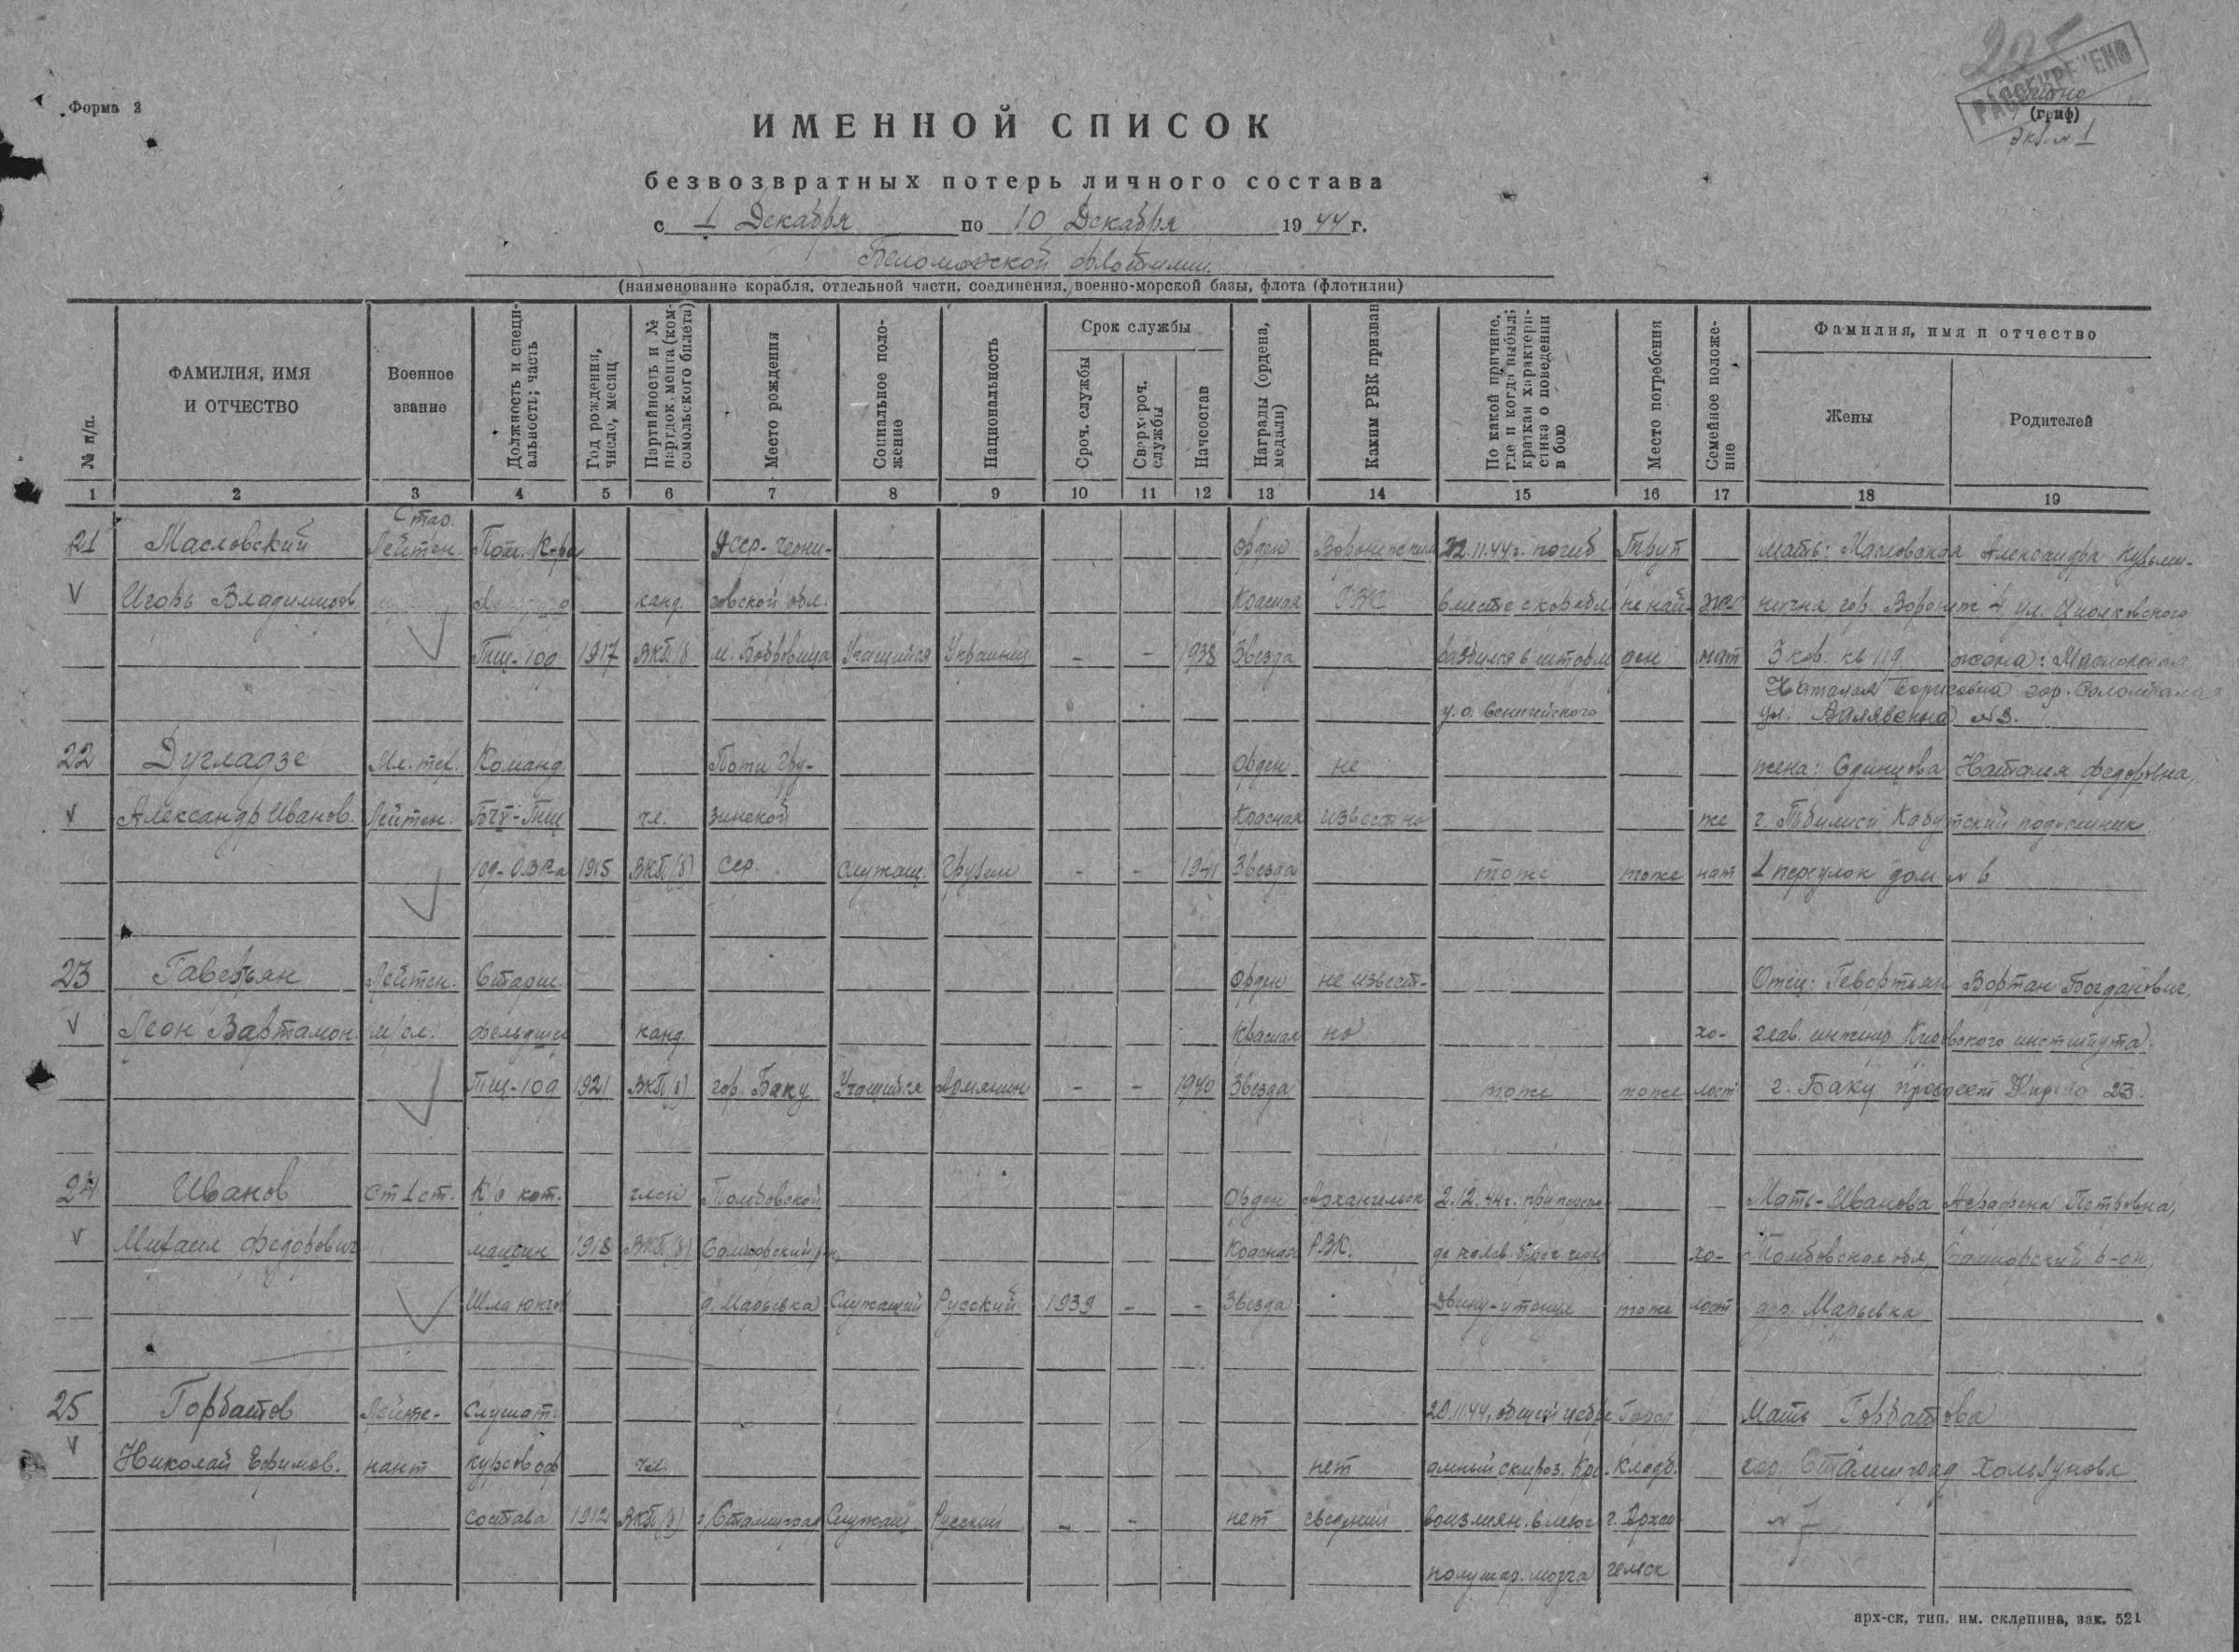 Форма 2
РАССЕКРЕЧЕНО
(гриф)
экз. № 1
ИМЕННОЙ СПИСОК
безвозвратных потерь личного состава
с 1 Декабря по 10 Декабря 1944 г.
Беломорской флотилии.
(наименование корабля, отдельной части, соединения, военно-морской базы, флота (флотилии)
№ п/п.
ФАМИЛИЯ, ИМЯ И ОТЧЕСТВО
Военное звание
Должность и специальность; часть
Год рождения, число, месяц
Партийность и № партдокумента (комсомольского билета)
Место рождения
Социальное положение
Национальность
Срок службы
Сроч. службы
Сверхсроч. службы
Начсостав
Награды (ордена, медали)
Каким РВК призван
По какой причине, где и когда выбыл; краткая характеристика о поведении в бою
Место погребения
Семейное положение
Фамилия, имя и отчество
Жены
Родителей
1 2 3 4 5 6 7 8 9 10 11 12 13 14 15 16 17 18 19
Стар.
21 Масловский Лейтен. Пом. К-ра Усср-Черни- Орден Воронежским 22.11.44г. погиб Труп мать: Масловская Александра Кузьми-
V Игорь Владимиров канд. говской обл. Красная РВК вместе с корабл. не най- же нична гор. Воронеж 4, ул. Циолковского
Тщ-109 1917 ВКП/б м. Бобровица Учащийся Украинец - - 1938 Звезда разбился в шторм ден нат 3 кв. 119, жена: Масловская
Наталия Борисовна гор. Соломбала
у. о. ул. №3.
22 Дугладзе Мл. тех. Команд. Поти Гру- Орден не жена: Одинцова Наталия Федоровна,
v Александр Иванов. Лейтен. БЧV-Тщ чл. зинской Красная известно же г. Тбилиси
109-ОВРа 1915 ВКП(б) сср. Служащ. Грузин - - 1941 Звезда тоже тоже нат 1 переулок дом № 6
23 Лейтен. Старш. Орден не извест- Отец: Вортан Богданович,
V Леон Вартамон. м/сл. фельдшер канд. Красная но хо- глав. инженер института
Тщ-109 1921 ВКП(б) гор. Баку Учащийся Армянин - - 1940 Звезда тоже тоже лост г. Баку проспект Кирова 23.
24 Иванов Ст 1 ст. К/о кот. член Тамбовской Орден Архангельск 2.12.44г. при перехо- Мать-Иванова Аграфена Петровна,
v Михаил Федорович машин 1918 ВКП(б) р-н, Красная РВК. де на лев. берег хо- Тамбовская обл, р-он,
д. Марьевка Служащий Русский 1939 - - Звезда Двину-утонул тоже лост дер. Марьевка
25 Горбатов Лейте- Слушат. 20.11.44, общий Город. Мать Горбатова
v Николай Ефимов. нант курсов оф. чл. нет склероз. Кро- Кладб. гор. Сталинград Хользунова
состава 1912 ВКП(б) г. Сталинград Служащ. Русский - - нет сведений воизлиян. в левое г. Архан- № 7
полушар. мозга гельск
арх-ск, тип. им. склепина, зак. 521